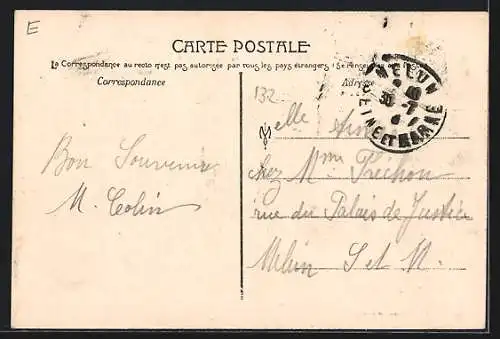 E
CARTE POSTALE
La Correspondance au recto n'est pas autorisée par tous les pays étrangers (Se renseigner
Correspondance
Adresse
MELUN
SEINE ET MARNE
132
Melle
Bon Souvenir
M. Colin
chez Mme Préchon
rue du Palais de Justice
Melun S et M.